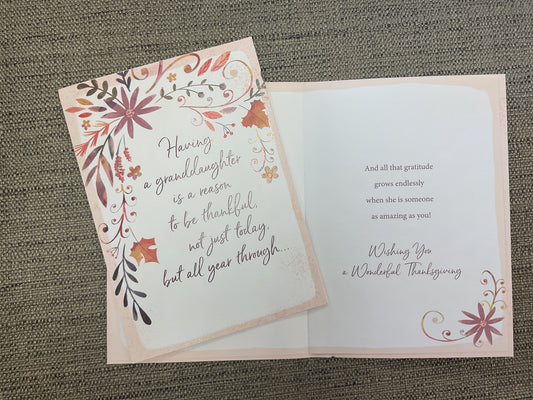 Having
a granddaughter
is a reason
to be thankful,
not just today,
but all year through...
And all that gratitude
grows endlessly
when she is someone
as amazing as you!
Wishing You
a Wonderful Thanksgiving